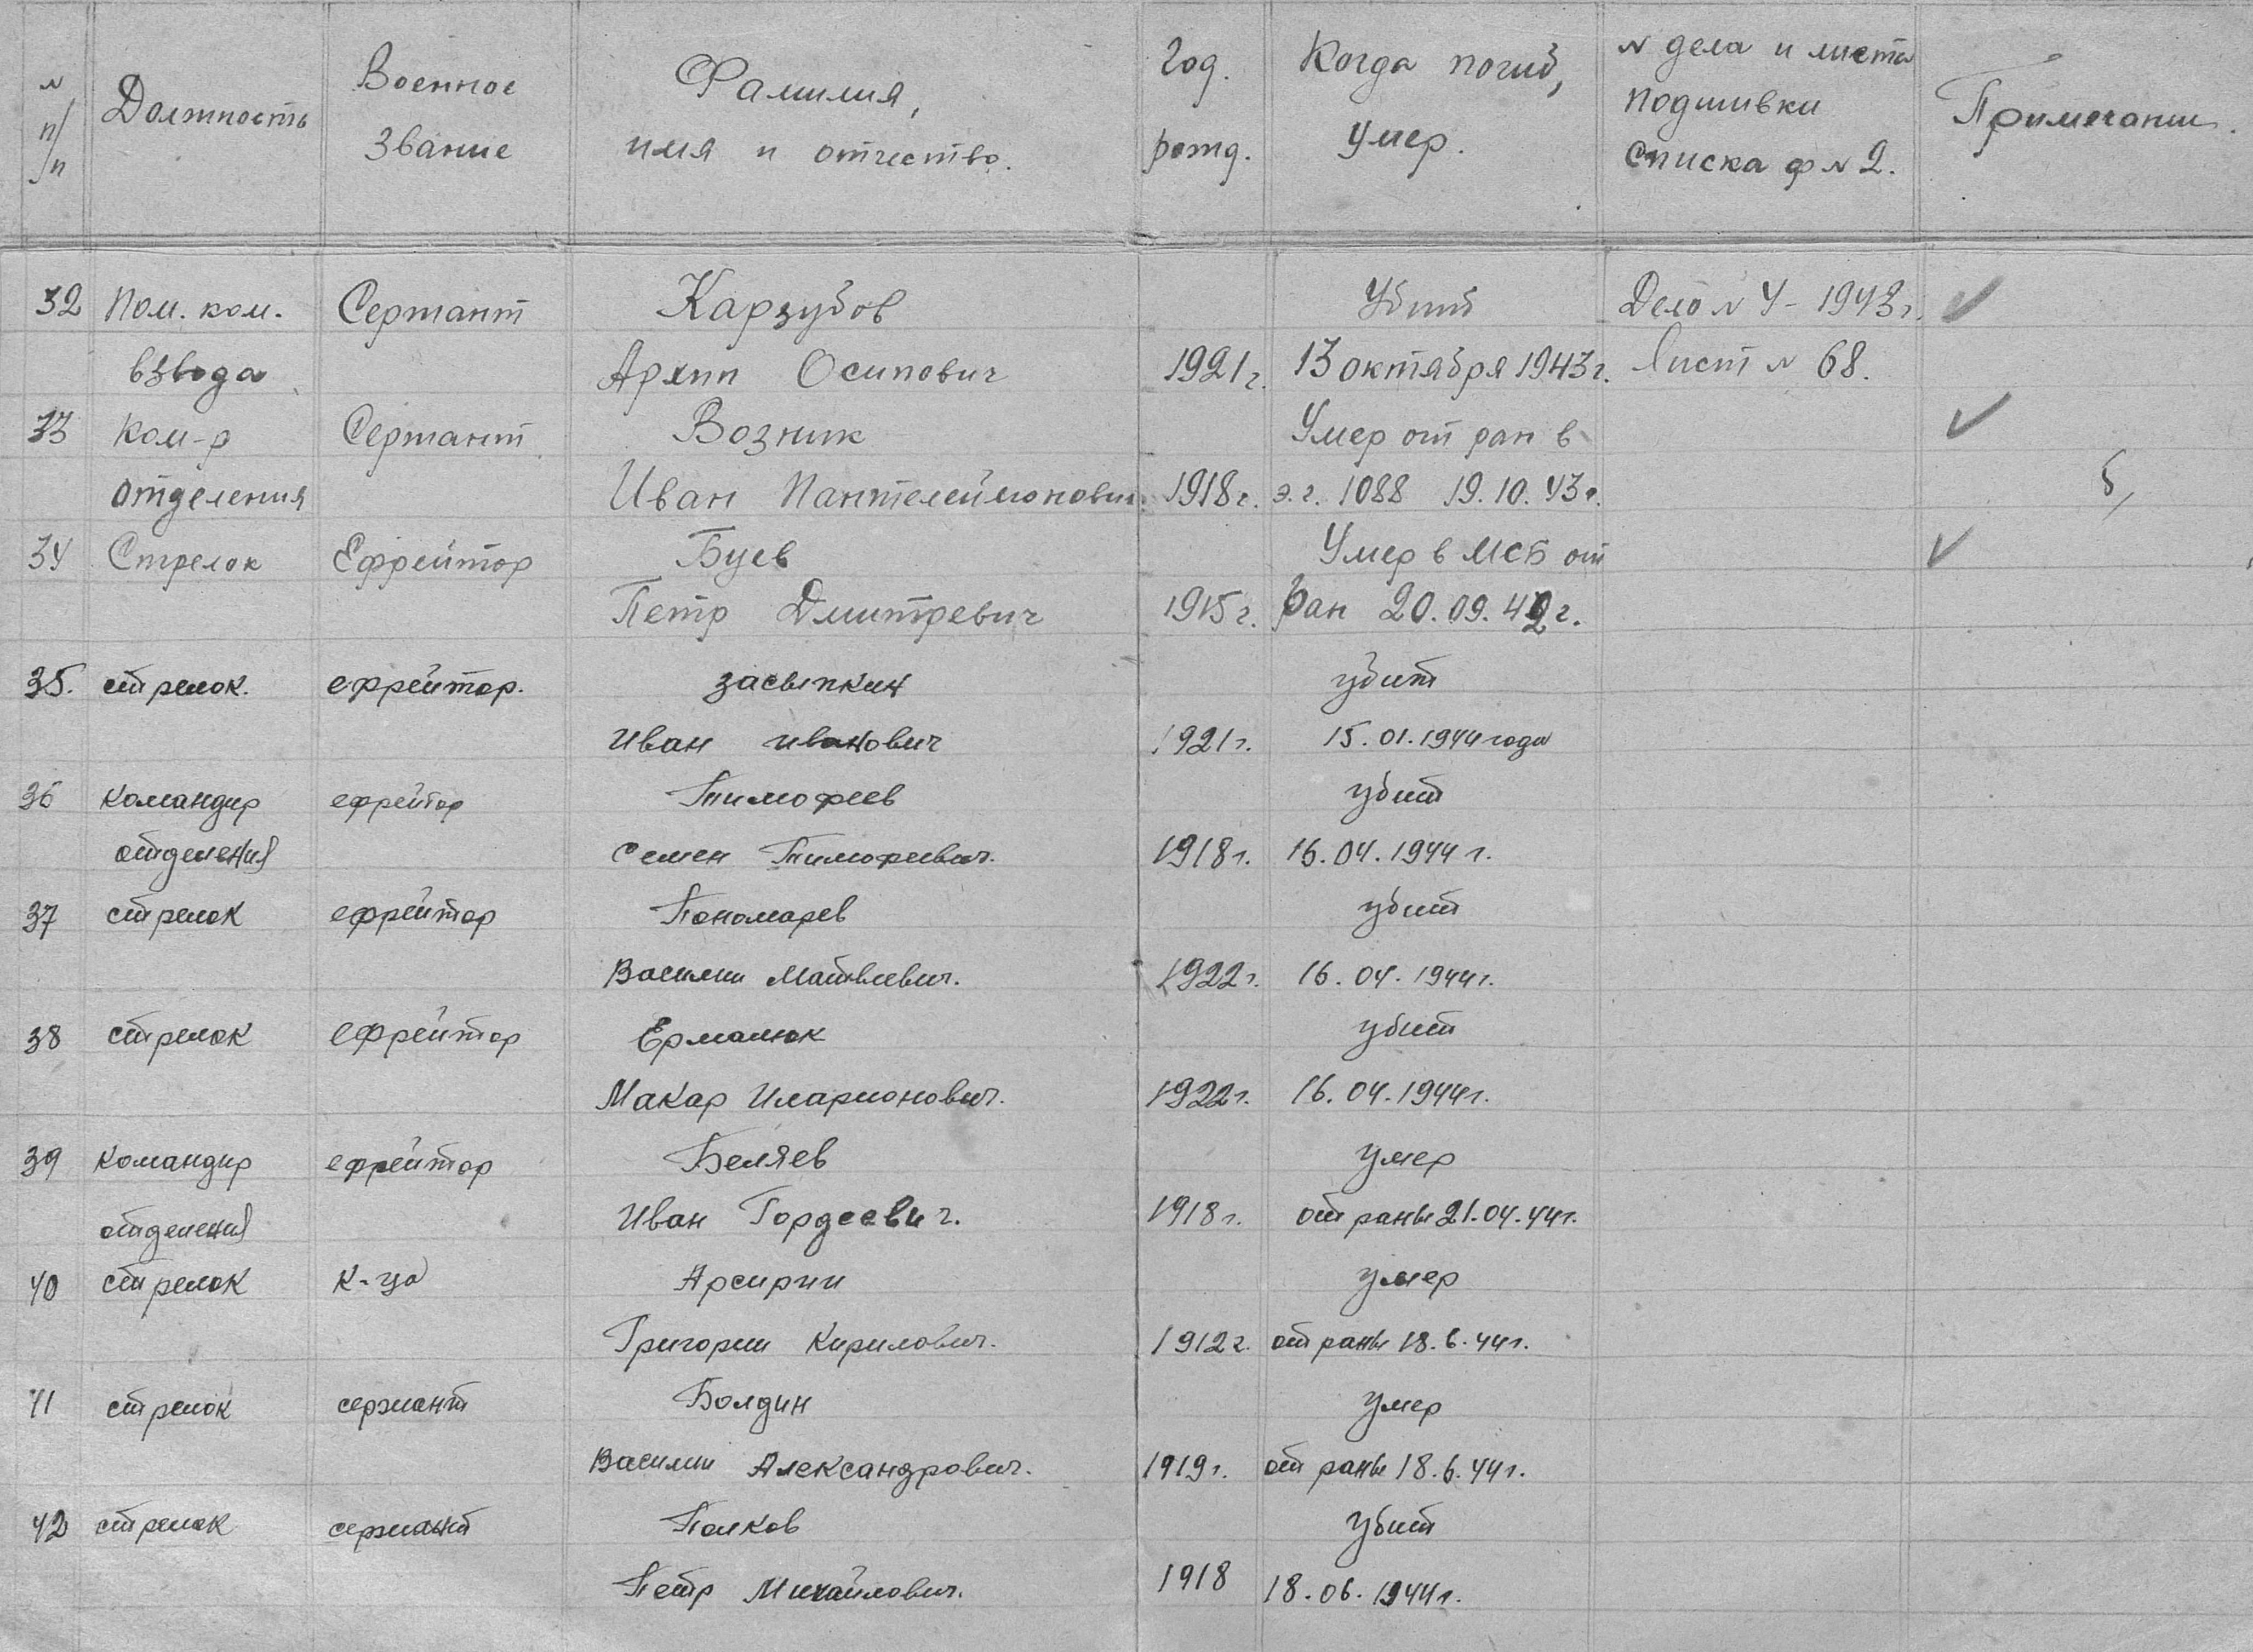 № п/п Должность Военное звание Фамилия, имя и отчество. Год рожд. Когда погиб, умер. № дела и листа подшивки списка ф № 2. Примечание.
32 Пом. ком. Сержант Карзубов Убит Дело № 4 - 1943 г. ✓
взвода Архип Осипович 1921 г. 13 октября 1943 г. Лист № 68.
33 Ком-р Сержант Возник Умер от ран в ✓
отделения Иван Пантелеймонович 1918 г. э.г. 1088 19.10.43 г.
34 Стрелок Ефрейтор Буев Умер в МСБ от ✓
Петр Дмитревич 1915 г. ран 20.09.42 г.
35. стрелок. ефрейтор. засыпкин убит
Иван иванович 1921 г. 15.01.1944 года
36 командир ефрейтор Тимофеев убит
отделения Семен Тимофеевич. 1918 г. 16.04.1944 г.
37 стрелок ефрейтор Пономарев убит
Василии Матвеевич. 1922 г. 16.04.1944 г.
38 стрелок ефрейтор Ермалюк убит
Макар Иларионович. 1922 г. 16.04.1944 г.
39 командир ефрейтор Беляев умер
отделения Иван Гордеевич. 1918 г. от раны 21.04.44 г.
40 стрелок к-ца Арсирии умер
Григории Кирилович. 1912 г. от раны 18.6.44 г.
41 стрелок сержант Болдин умер
Василии Александрович. 1919 г. от раны 18.6.44 г.
42 стрелок сержант Полков убит
Петр Михайлович. 1918 18.06.1944 г.